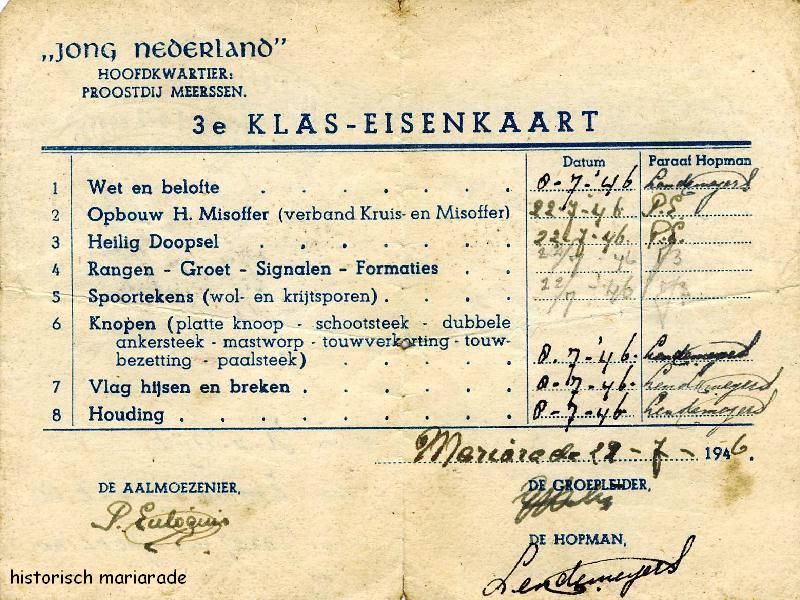 „JONG NEDERLAND”
HOOFDKWARTIER:
PROOSTDIJ MEERSSEN.
3e KLAS-EISENKAART
Datum Paraaf Hopman
1 Wet en belofte . . . . . . . 8-7-'46 Lendemeyers
2 Opbouw H. Misoffer (verband Kruis- en Misoffer) 22-7-46 P.E.
3 Heilig Doopsel . . . . . . . 22-7-46 P.E.
4 Rangen - Groet - Signalen - Formaties . . 22/7-46
5 Spoortekens (wol- en krijtsporen) . . . . 22/7-'46
6 Knopen (platte knoop - schootsteek - dubbele
ankersteek - mastworp - touwverkorting - touw-
bezetting - paalsteek) . . . . . . 8-7-'46 Lendemeyers
7 Vlag hijsen en breken . . . . . . 8-7-'46 Lendemeyers
8 Houding . . . . . . . . . 8-7-46 Lendemeyers
Mariarade 22-7-1946.
DE AALMOEZENIER, DE GROEPLEIDER,
P. Eulogius
DE HOPMAN,
Lendemeyers
historisch mariarade